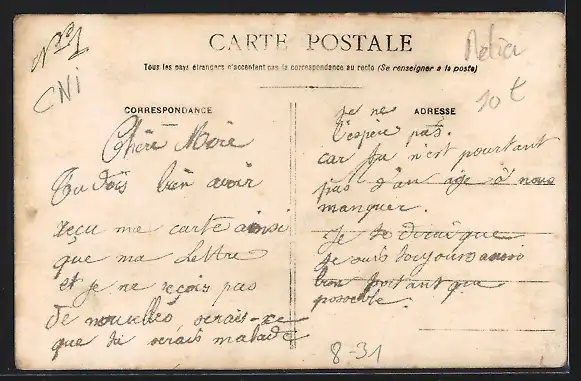 N°1
CNI
CARTE POSTALE
Tous les pays étrangers n'acceptent pas la correspondance au recto (Se renseigner à la poste)
Métier
10 t
CORRESPONDANCE
ADRESSE
Chère Mère
Tu dois bien avoir
reçu ma carte ainsi
que ma lettre
et je ne reçois pas
de nouvelles serais-ce
que tu serais malade
je ne
l'espère pas.
car tu n'est pourtant
pas d'un age à nous
manquer.
Je te dirai que
je suis toujours aussi
bien portant que
possible.
8-31